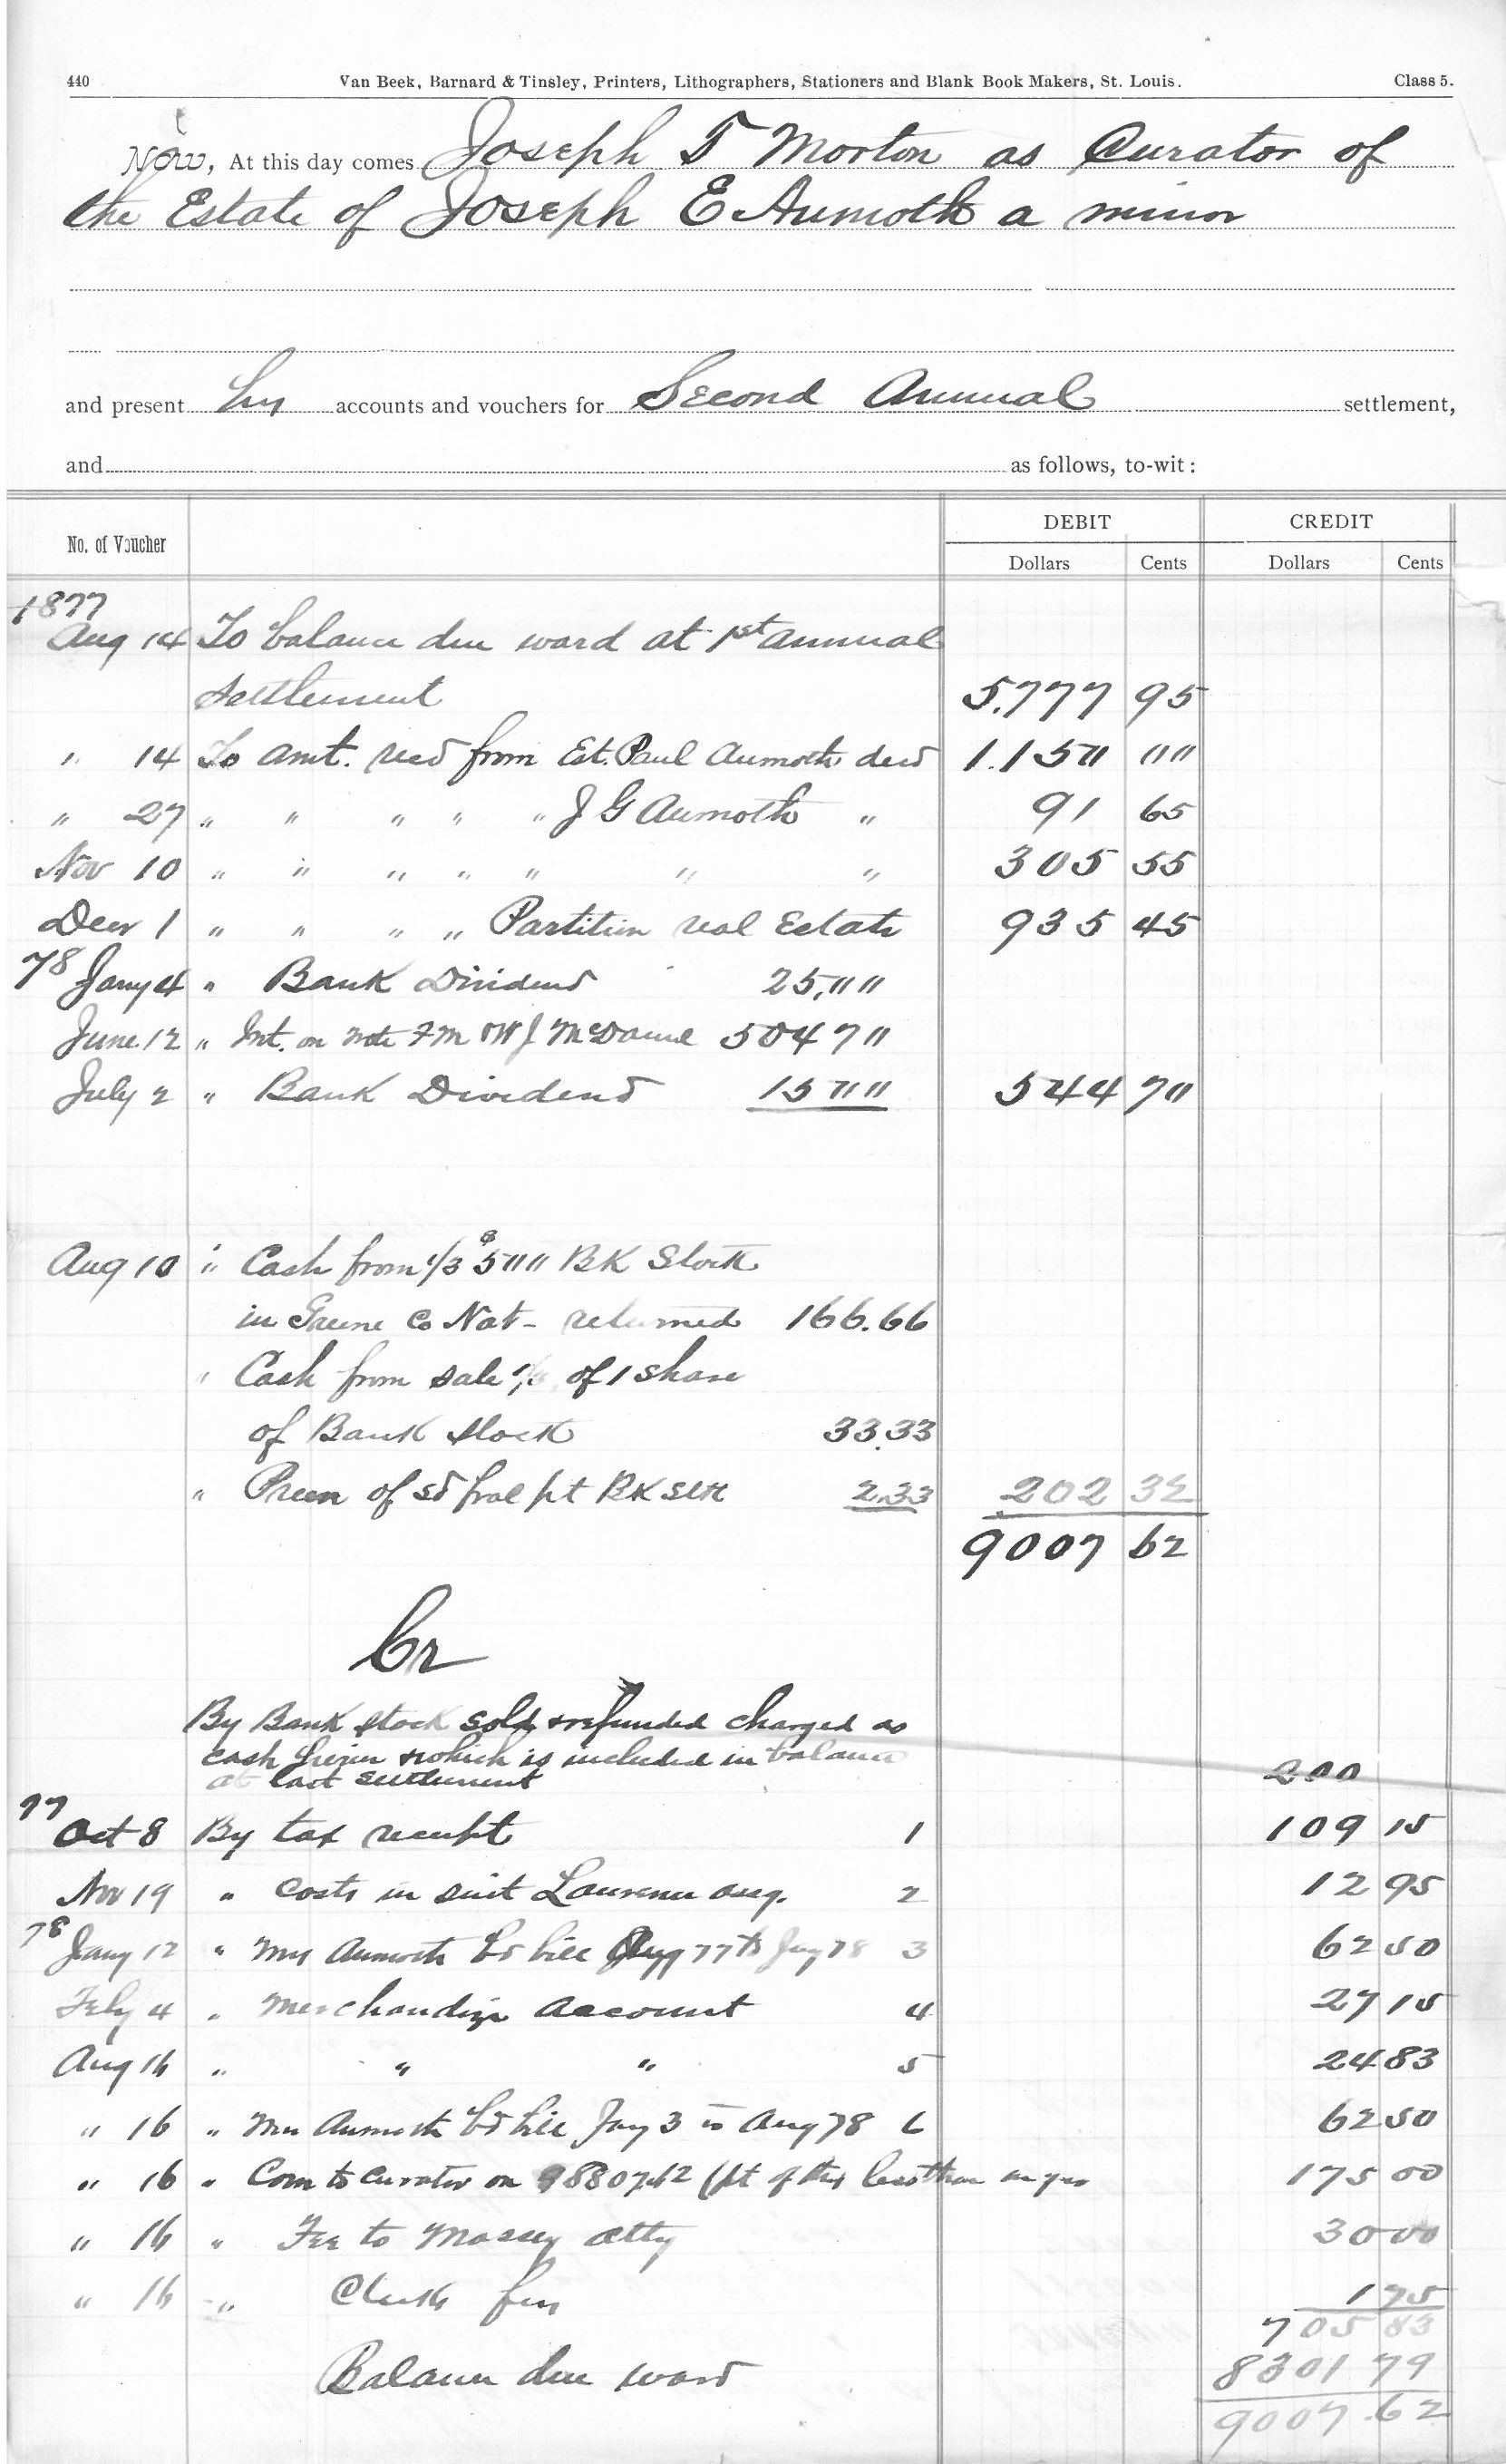 440 Van Beek, Barnard & Tinsley, Printers, Lithographers, Stationers and Blank Book Makers, St. Louis. Class 5.
Now, At this day comes Joseph T Morton as Curator of
the Estate of Joseph E Aumoth a minor
and present his accounts and vouchers for Second Annual settlement,
and as follows, to-wit:
DEBIT CREDIT
No. of Voucher Dollars Cents Dollars Cents
1877
Aug 14 To balance due ward at 1st annual
settlement 5.777 95
" 14 To amt. recd from Est. Paul Aumoth decd 1.15" ""
" 27 " " " " " J G Aumoth " 91 65
Nov 10 " " " " " " " 305 55
Decr 1 " " " " Partition real Estate 935 45
78 Jany 4 " Bank Dividend 25.""
June 12 " Int. on note F M & W J McDaniel 504 7"
July 2 " Bank Dividend 15 "" 544 7"
Aug 10 " Cash from 1/3 $5"" BK Stock
in Greene Co Nat- returned 166.66
" Cash from sale of 1 share
of Bank stock 33.33
" Prem of sd fracl pt BK Stk 2.33 202 32
9007 62
Cr
By Bank stock sold & refunded charged as
cash herein & which is included in balance
at last settlement 200
77
Oct 8 By tax receipt 1 109 15
Nov 19 " Costs in suit 2 12 95
78
Jany 12 " Mrs Aumoth bd bill Aug 77 to Jay 78 3 62 50
Feby 4 " Merchandize account 4 27 15
Aug 16 " " " 5 24 83
" 16 " Mrs Aumoth bd bill Jay 3 to Aug 78 6 62 50
" 16 " Com to Curator on (pt of this less than 175 00
" 16 " Fee to Massey atty 30 00
" 16 " Clerks fees 1 75
705 83
Balance due ward 8301 79
9007.62